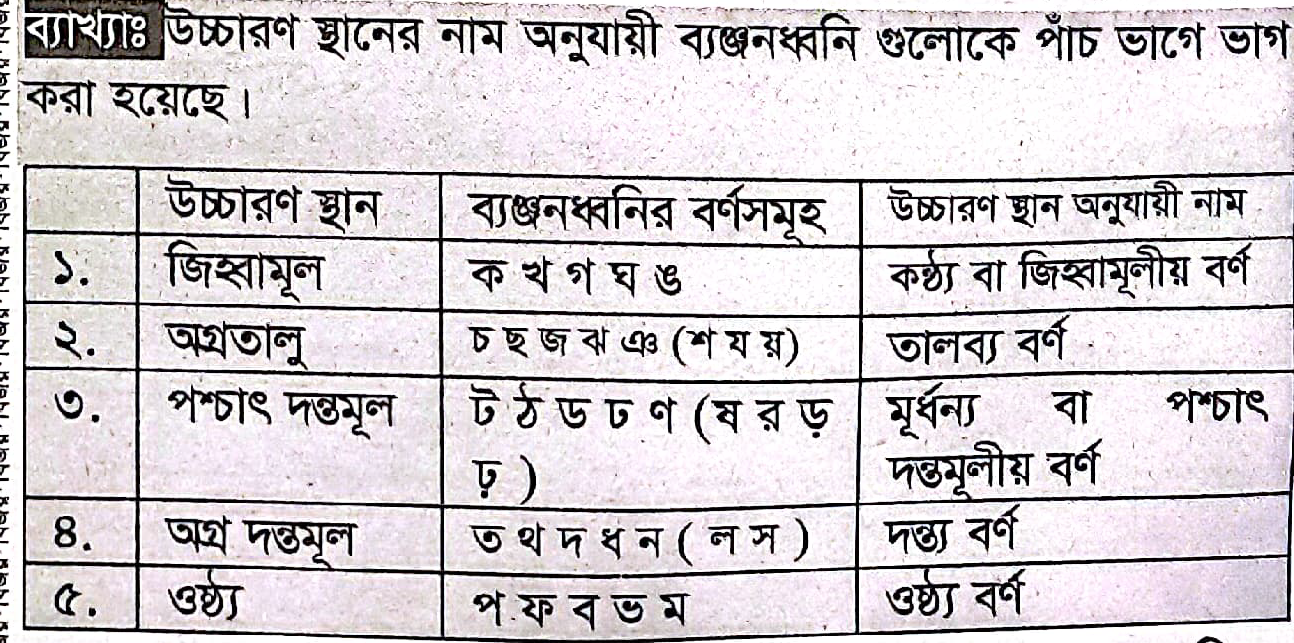 ব্যাখ্যাঃ উচ্চারণ স্থানের নাম অনুযায়ী ব্যঞ্জনধ্বনি গুলোকে পাঁচ ভাগে ভাগ
করা হয়েছে।
উচ্চারণ স্থান ব্যঞ্জনধ্বনির বর্ণসমূহ উচ্চারণ স্থান অনুযায়ী নাম
১. জিহ্বামূল ক খ গ ঘ ঙ কণ্ঠ্য বা জিহ্বামূলীয় বর্ণ
২. অগ্রতালু চ ছ জ ঝ ঞ (শ য য়) তালব্য বর্ণ
৩. পশ্চাৎ দন্তমূল ট ঠ ড ঢ ণ (ষ র ড় মূর্ধন্য বা পশ্চাৎ
ঢ় ) দন্তমূলীয় বর্ণ
৪. অগ্র দন্তমূল ত থ দ ধ ন ( ল স ) দন্ত্য বর্ণ
৫. ওষ্ঠ্য প ফ ব ভ ম ওষ্ঠ্য বর্ণ